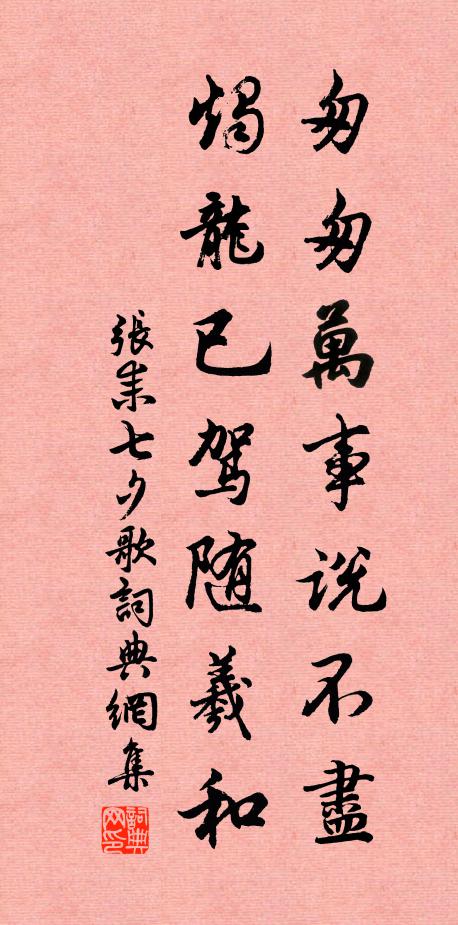 匆匆萬事説不盡
燭龍已駕隨羲和
張耒七夕歌詞典網集
詞典网印